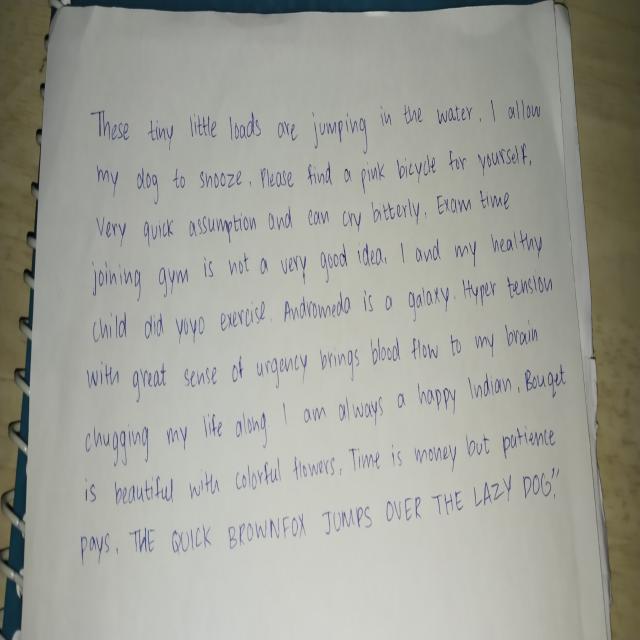 These tiny little loads are jumping in the water. I allow
my dog to snooze. Please find a pink bicycle for yourself.
Very quick assumption and can cry bitterly. Exam time
joining gym is not a very good idea. I and my healthy
child did yoyo exercise. Andromeda is a galaxy. Hyper tension
with great sense of urgency brings blood flow to my brain
chugging my life along I am always a happy Indian. Bouqet
is beautiful with colorful flowers. Time is money but patience
pays. THE QUICK BROWNFOX JUMPS OVER THE LAZY DOG".